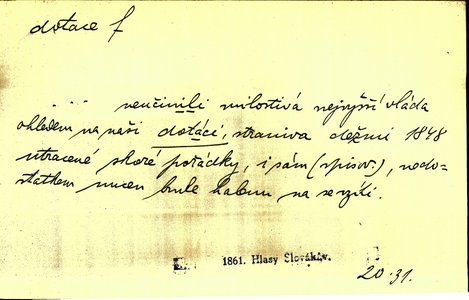 dotace f
.... neučinili milostivá nejvyšší vláda
ohledem na naši dotácí, straniva dežmi 1848
utracené skoré pořádky, i sám (spisov.), nedo-
statkem nucen bude habnu na se vzíti.
1861. Hlasy Slovákův.
20.31.